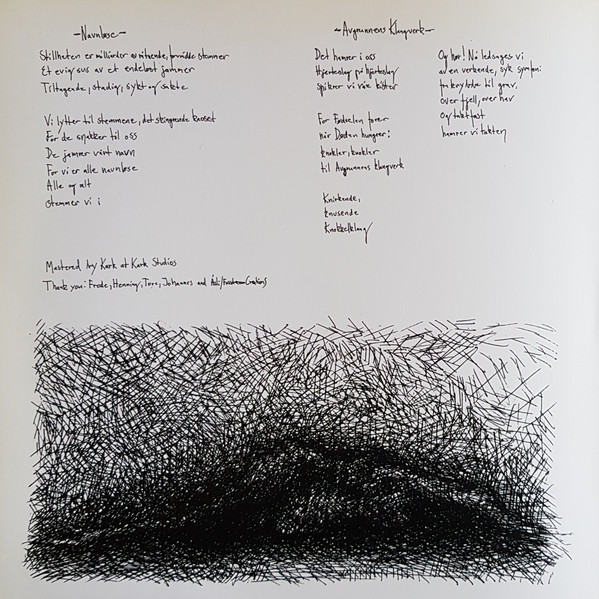 -Navnløse-
Stillheten er milliarder av hvinende, forvridde stemmer
Et evig sus av et endeløst jammer
Tiltagende, stadig, sykt og sakte
Vi lytter til stemmene, det skingrende kaoset
For de snakker til oss
De jamrer vårt navn
For vi er alle navnløse
Alle og alt
stemmer vi i
-Avgrunnens Klangverk-
Det hamrer i oss
Hjerteslag på hjerteslag
spikrer vi våre kister
For Fødselen forer
når Døden hungrer:
knokler, knokler
til Avgrunnens klangverk
Knirkende,
knusende
Knokkelklang
Og hør! Nå ledsages vi
av en verkende, syk symfoni
fra krybbe til grav,
over fjell, over hav
Og taktfast
hamrer vi takten
Mastered by Kark at Kark Studios
Thank you: Frode, Henning, Tore, Johannes and